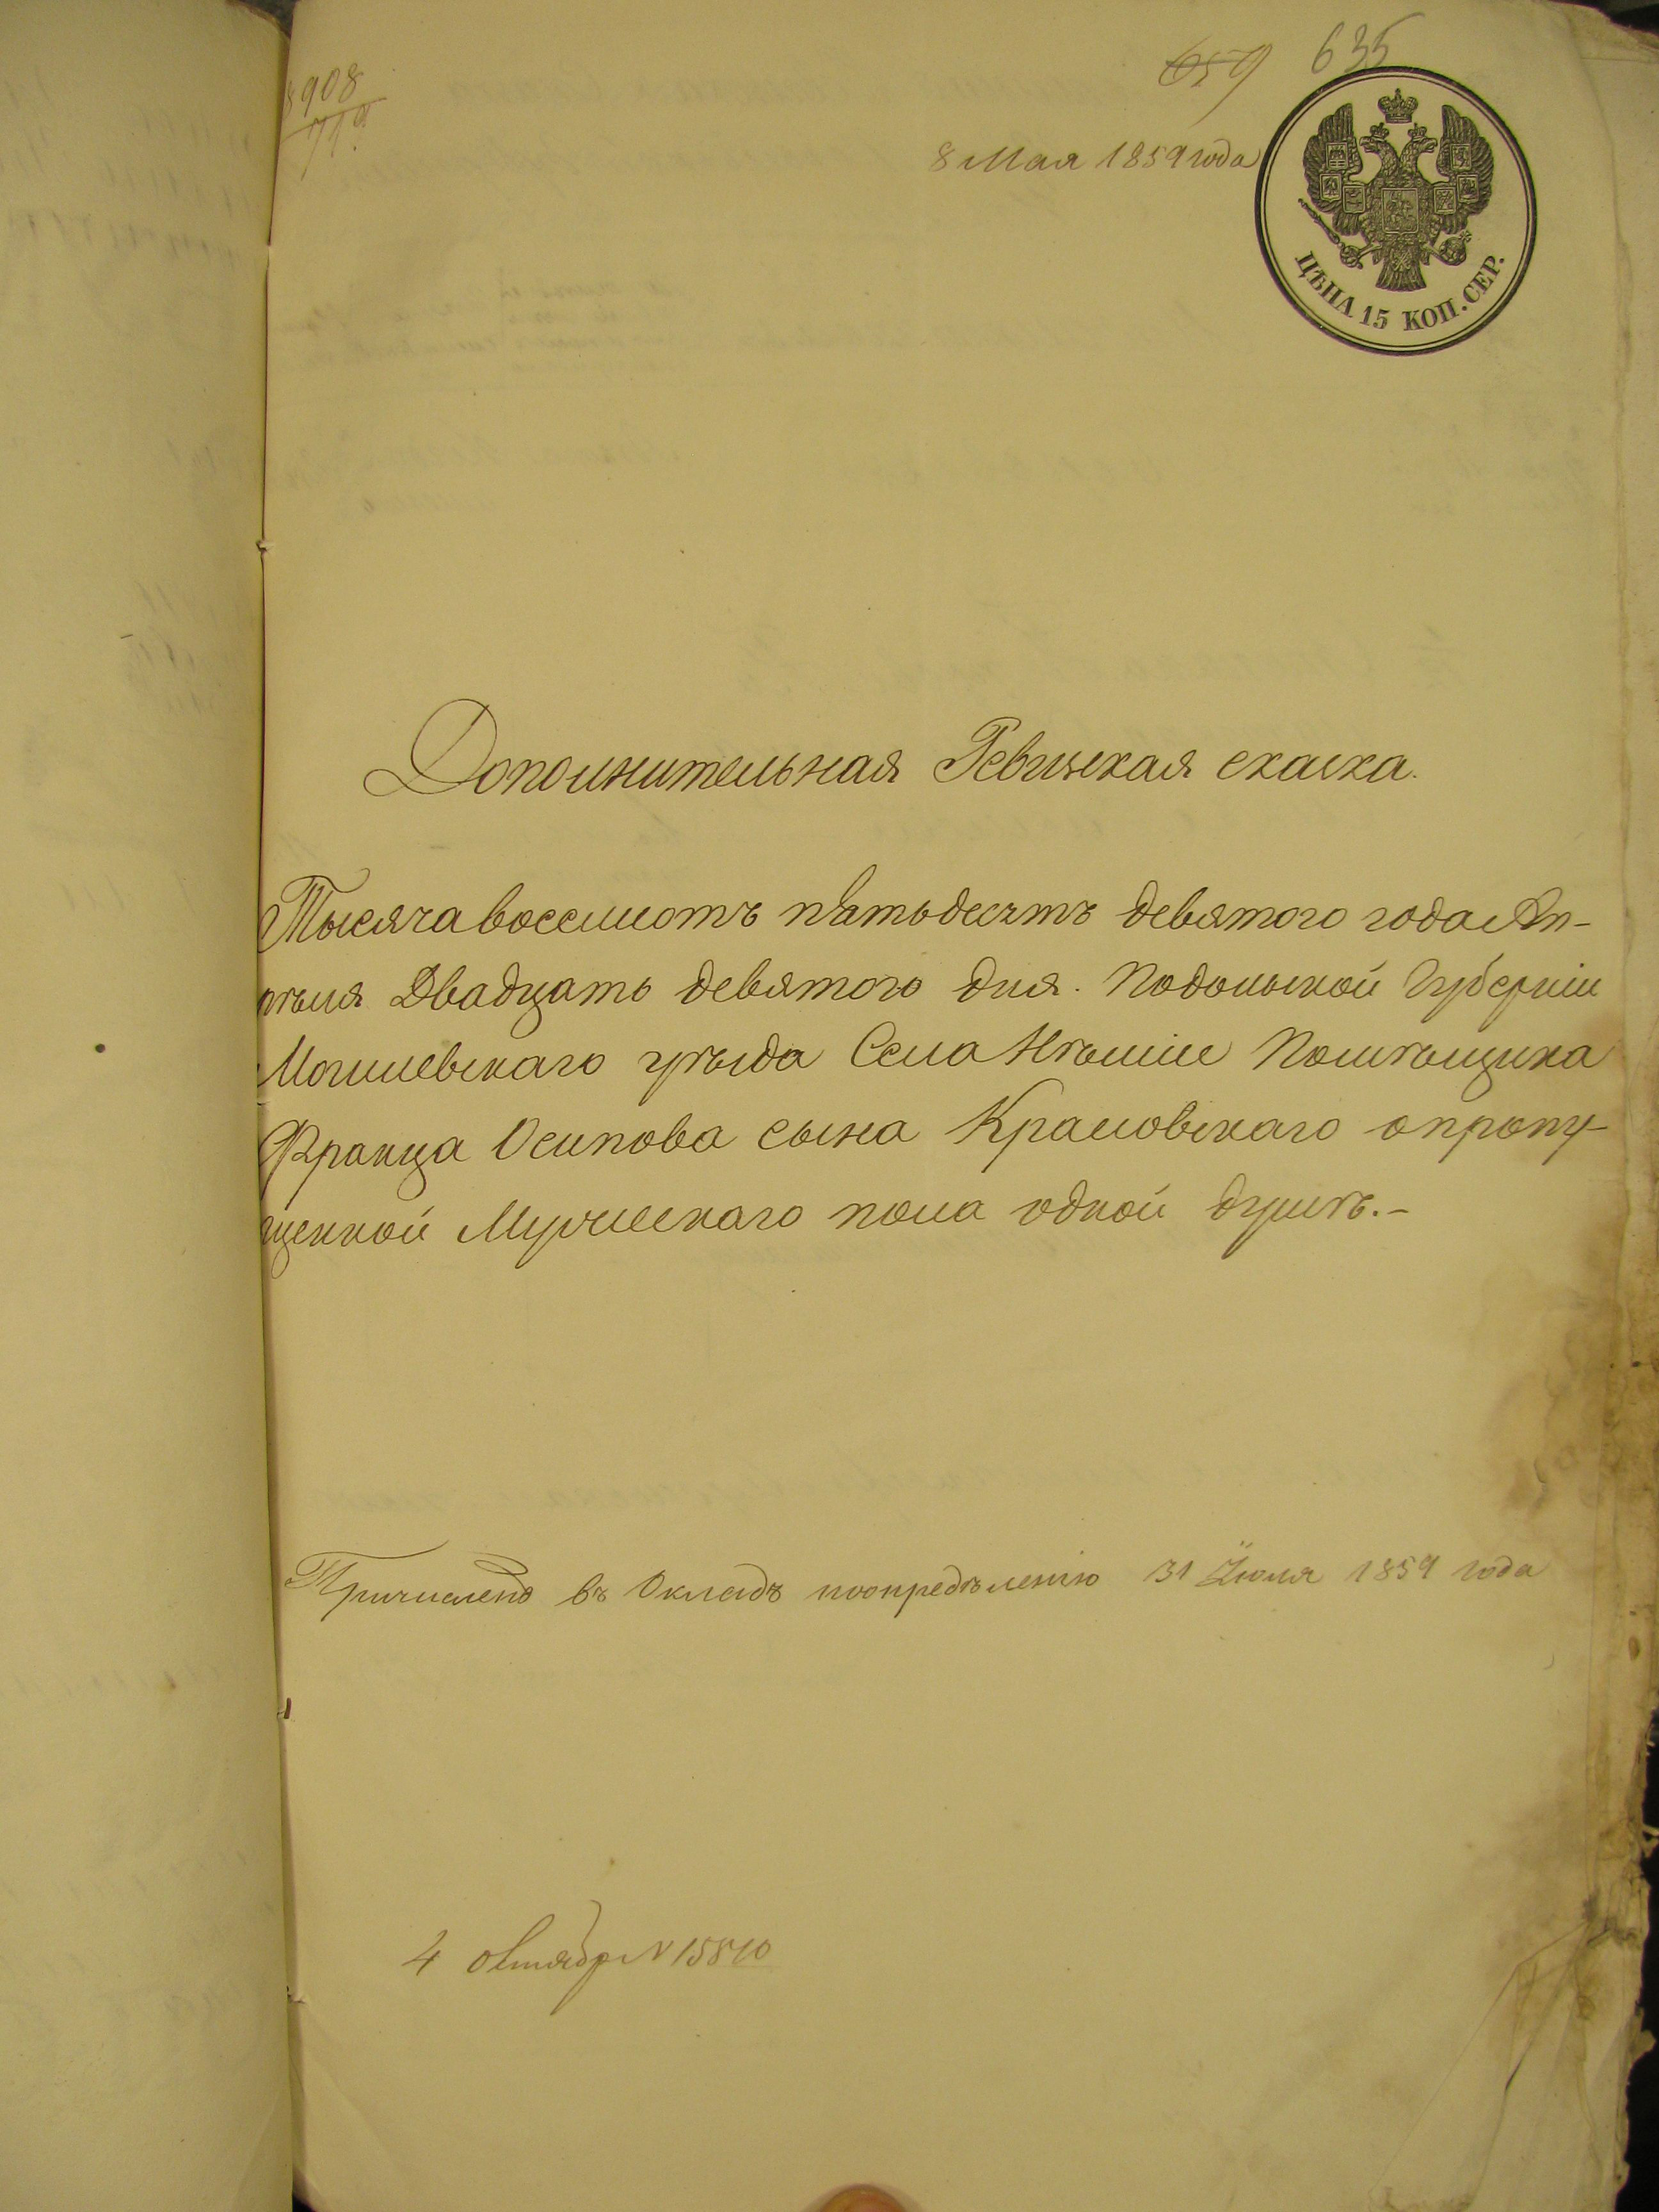 659 635
8908
8 Мая 1859 года
ЦѢНА 15 КОП. СЕР.
Дополнительная Ревизская скаска.
Тысяча восемсотъ пятьдесятъ девятого года Ап-
рѣля Двадцать девятого дня. Подольской Губерніи
Могилевскаго уѣзда Села Нѣмие Помѣщика
Франца Осипова сына Крашовскаго опропу-
щенной Мужескаго пола одной душѣ.-
Причислено въ Окладъ поопредѣленію 31 Іюля 1859 года
4 октябр N 15810